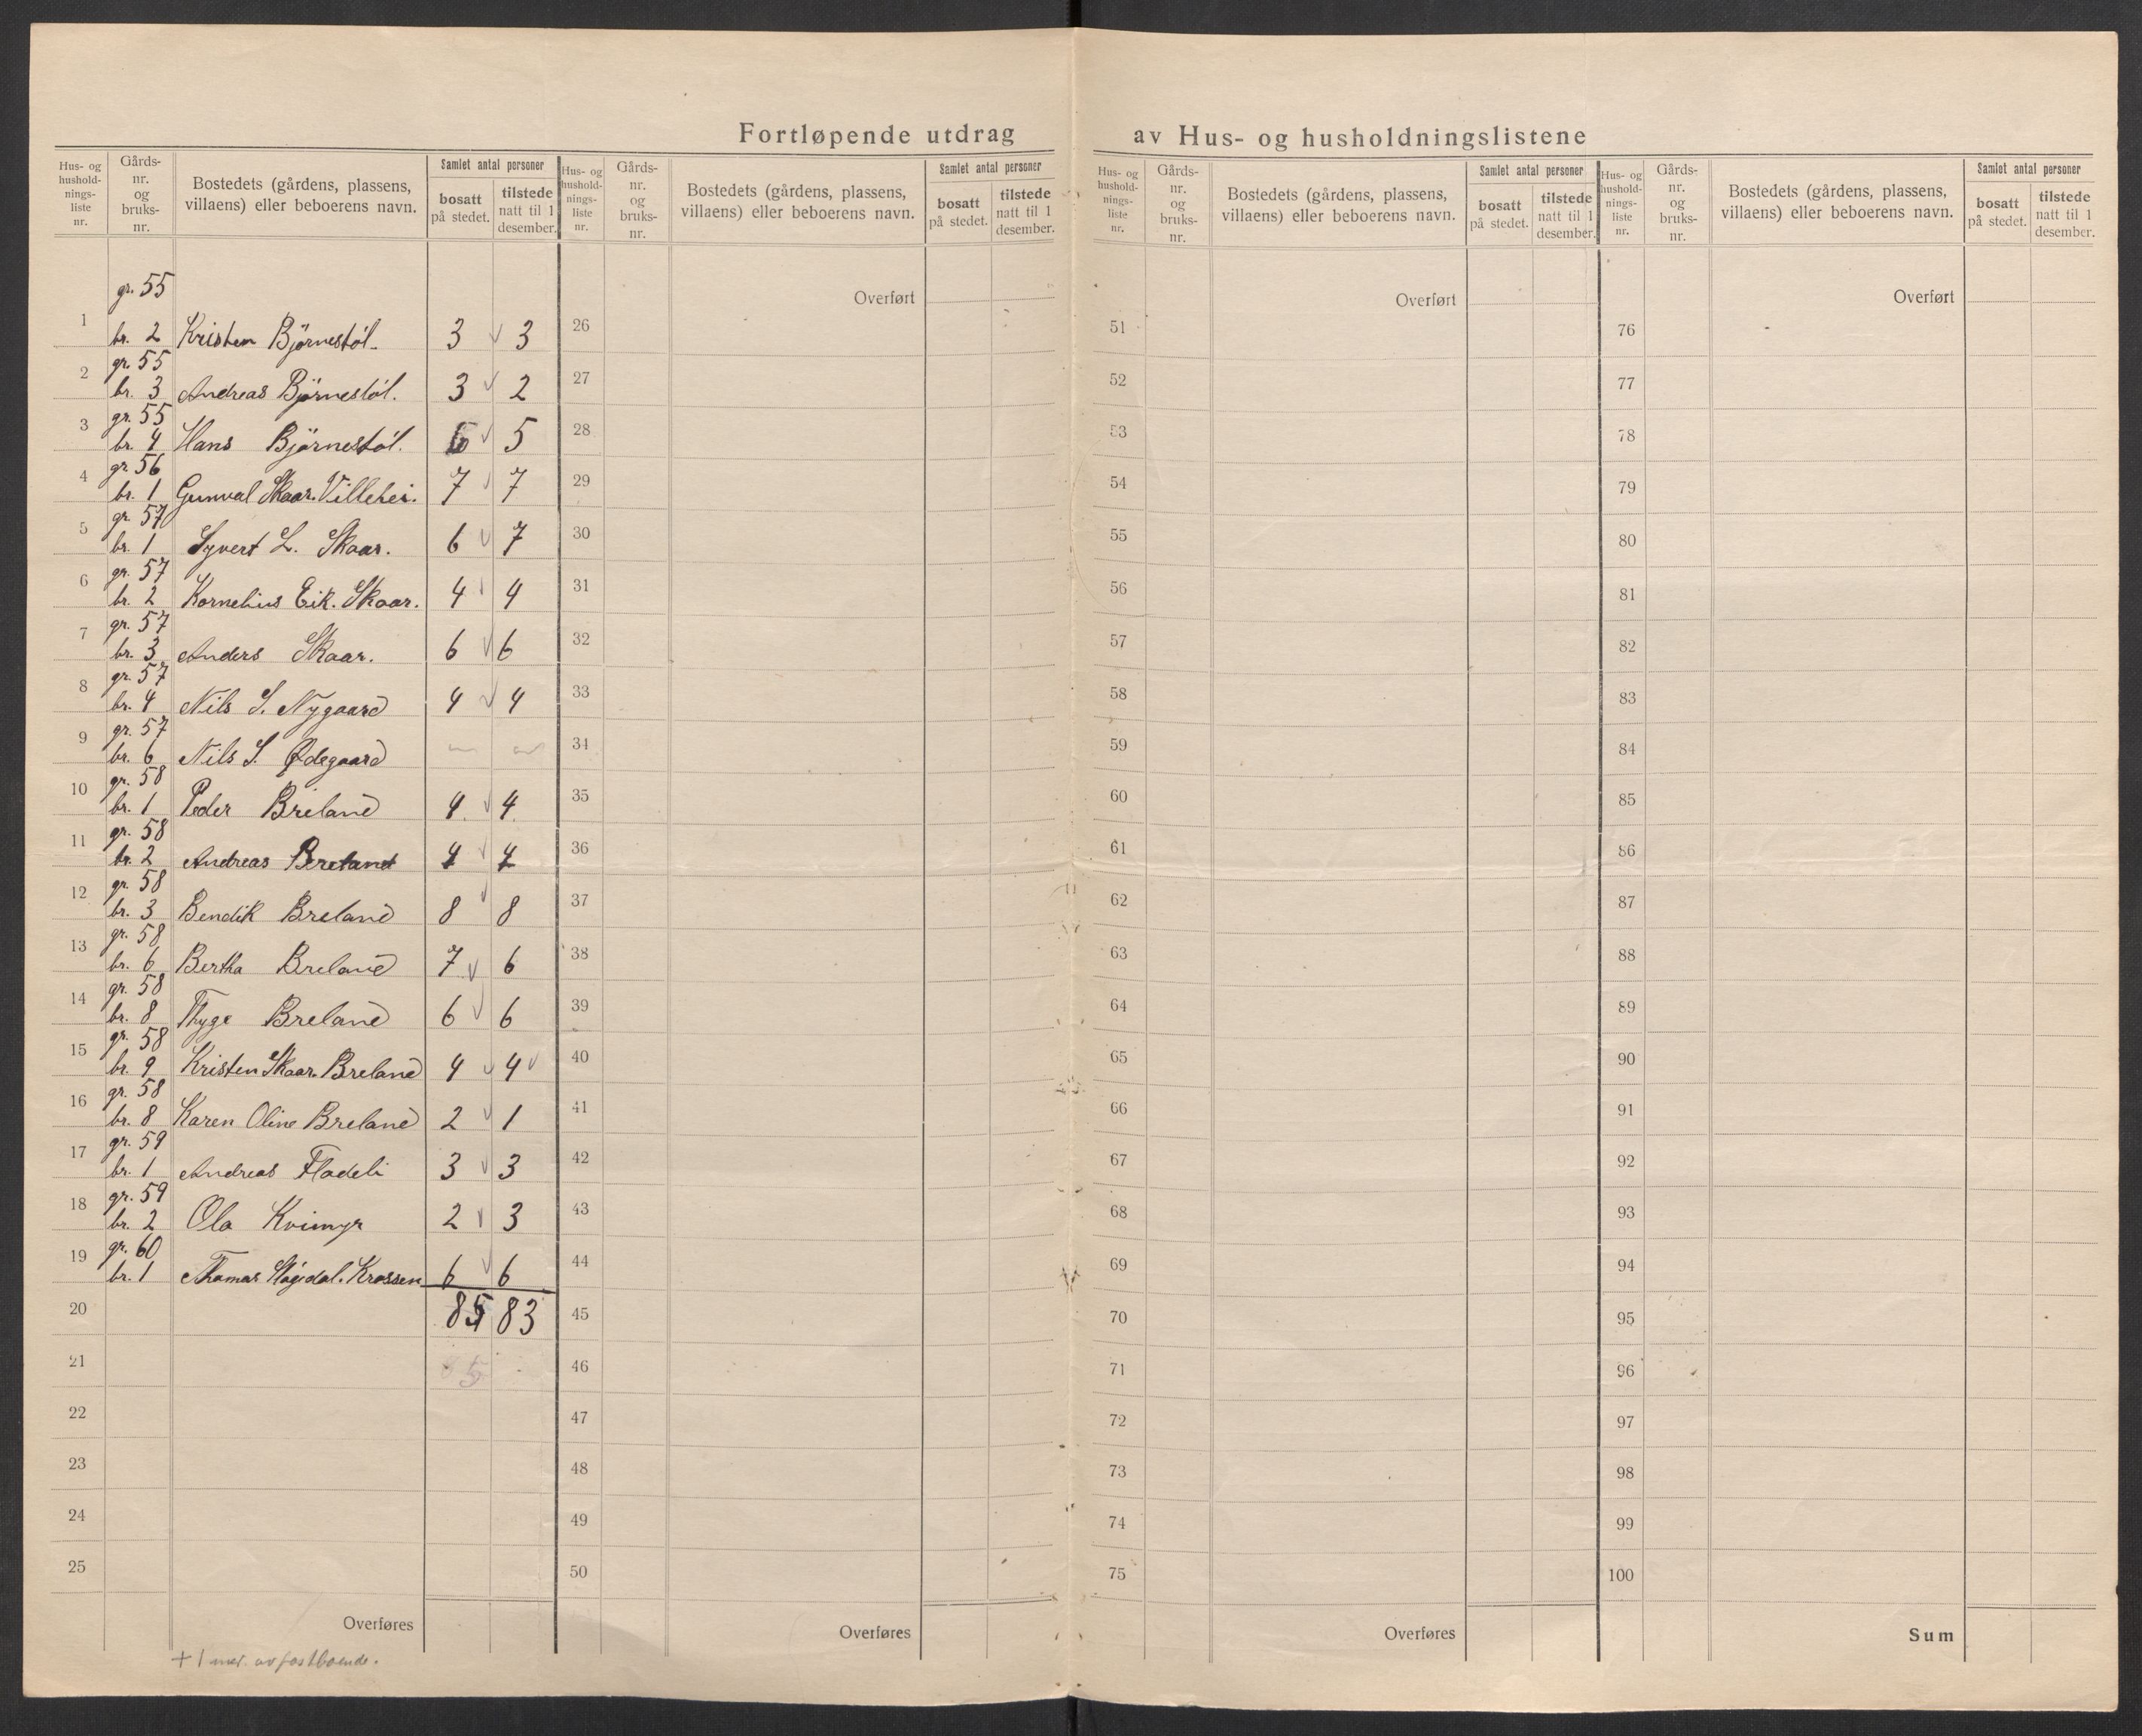 Fortløpende utdrag av Hus- og husholdningslistene
Hus- og hushold-nings-liste nr. Gårds-nr. og bruks-nr. Bostedets (gårdens, plassens, villaens) eller beboerens navn. Samlet antal personer bosatt på stedet. tilstede natt til 1 desember.
Hus- og hushold-nings-liste nr. Gårds-nr. og bruks-nr. Bostedets (gårdens, plassens, villaens) eller beboerens navn. Samlet antal personer bosatt på stedet. tilstede natt til 1 desember.
Hus- og hushold-nings-liste nr. Gårds-nr. og bruks-nr. Bostedets (gårdens, plassens, villaens) eller beboerens navn. Samlet antal personer bosatt på stedet. tilstede natt til 1 desember.
Hus- og hushold-nings-liste nr. Gårds-nr. og bruks-nr. Bostedets (gårdens, plassens, villaens) eller beboerens navn. Samlet antal personer bosatt på stedet. tilstede natt til 1 desember.
1 gr. 55 br. 2 Kristen Bjørnestøl. 3 3
2 gr. 55 br. 3 Andreas Bjørnestøl. 3 2
3 gr. 55 br. 4 Hans Bjørnestøl. 6 5
4 gr. 56 br. 1 Gunval Skaar. Villehei. 7 7
5 gr. 57 br. 1 Syvert L. Skaar. 6 7
6 gr. 57 br. 2 Kornelius Eik. Skaar. 4 4
7 gr. 57 br. 3 Anders Skaar. 6 6
8 gr. 57 br. 4 Nils S. Nygaard 4 4
9 gr. 57 br. 6 Nils S. Ødegaard
10 gr. 58 br. 1 Peder Breland 4 4
11 gr. 58 br. 2 Andreas Breland 4 4
12 gr. 58 br. 3 Bendik Breland 8 8
13 gr. 58 br. 6 Bertha Breland 7 6
14 gr. 58 br. 8 Thyge Breland 6 6
15 gr. 58 br. 9 Kristen Skaar. Breland 4 4
16 gr. 58 br. 8 Karen Oline Breland 2 1
17 gr. 59 br. 1 Andreas Fladeli 3 3
18 gr. 59 br. 2 Ola Kvimyr 2 3
19 gr. 60 br. 1 Thomas Høgedal. Krossen 6 6
20 85 83
21 85
22
23
24
25
Overføres
+ 1 mer. av fastboende.
Overført
26
27
28
29
30
31
32
33
34
35
36
37
38
39
40
41
42
43
44
45
46
47
48
49
50
Overføres
Overført
51
52
53
54
55
56
57
58
59
60
61
62
63
64
65
66
67
68
69
70
71
72
73
74
75
Overføres
Overført
76
77
78
79
80
81
82
83
84
85
86
87
88
89
90
91
92
93
94
95
96
97
98
99
100
Sum